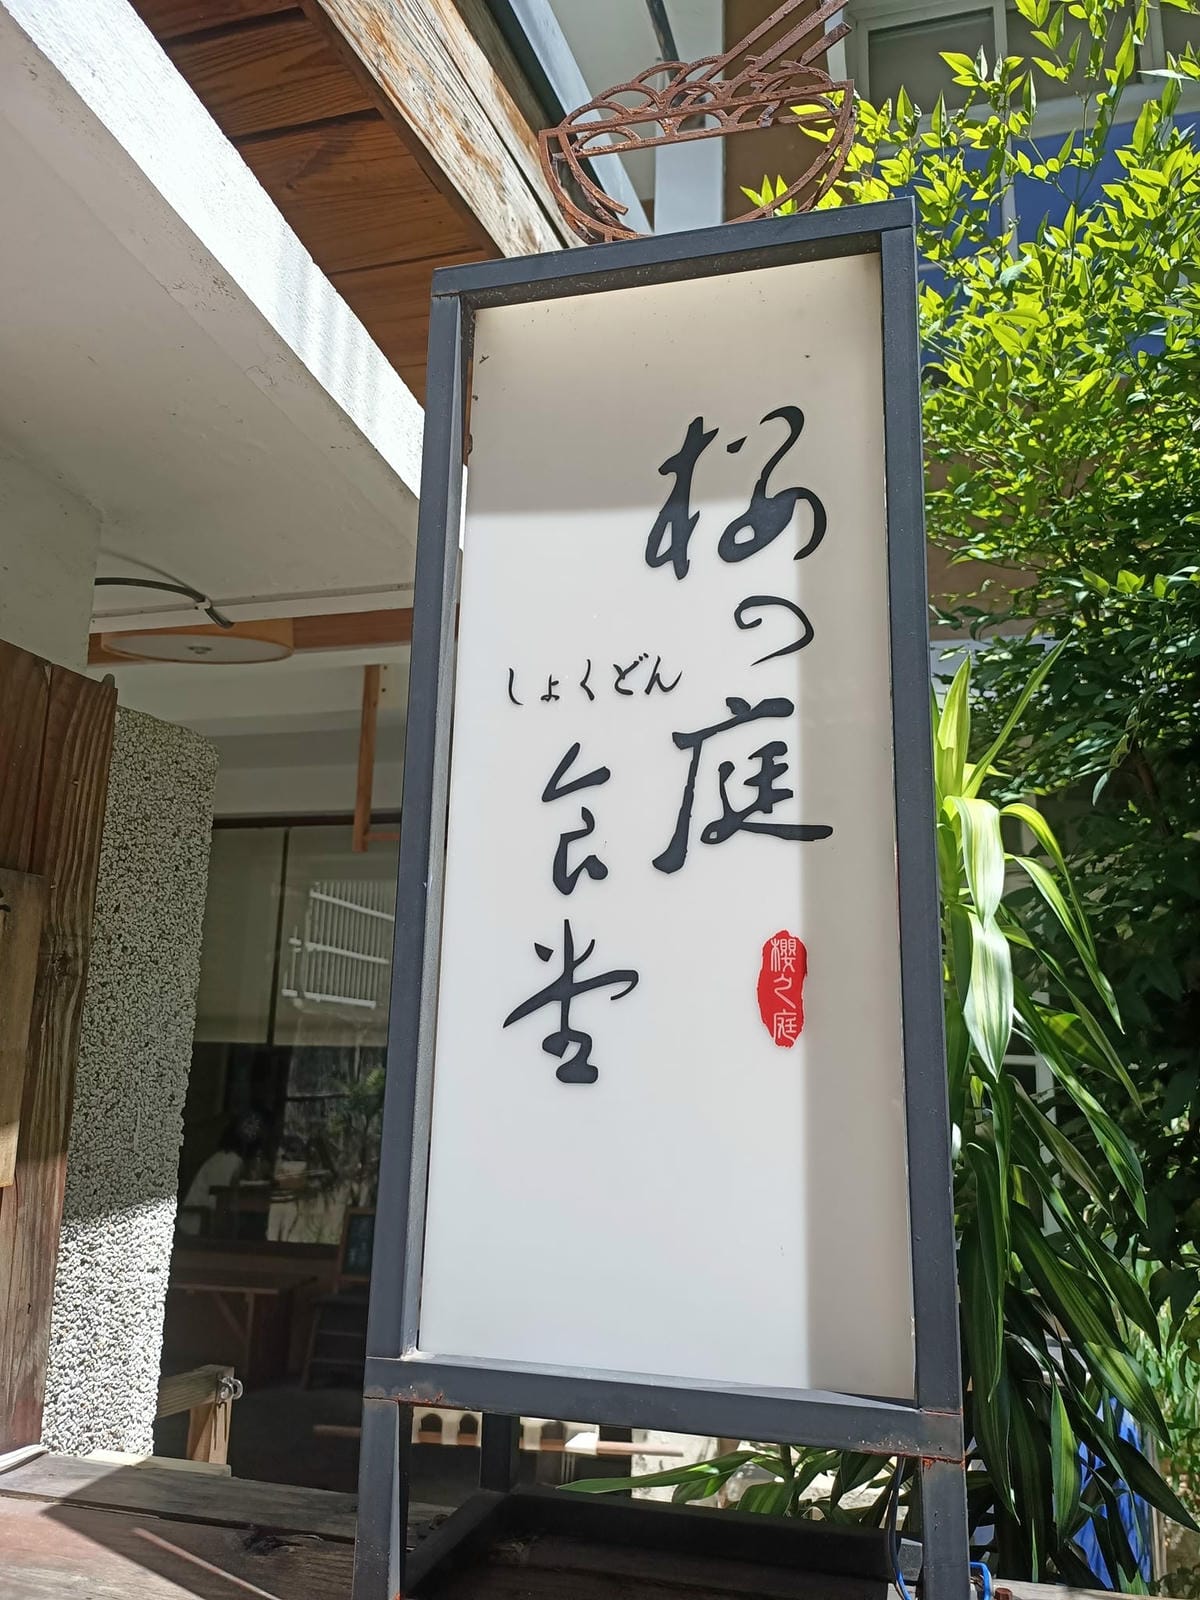 桜の庭
しょくどん
食堂
櫻之庭